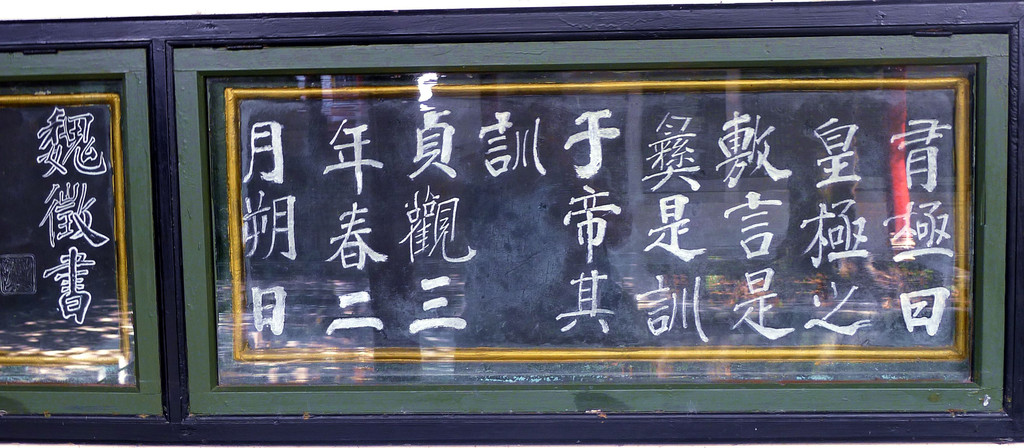 有極曰
皇極之
敷言是
彝是訓
于帝其
訓
貞觀三
年春二
月朔日
魏徵書